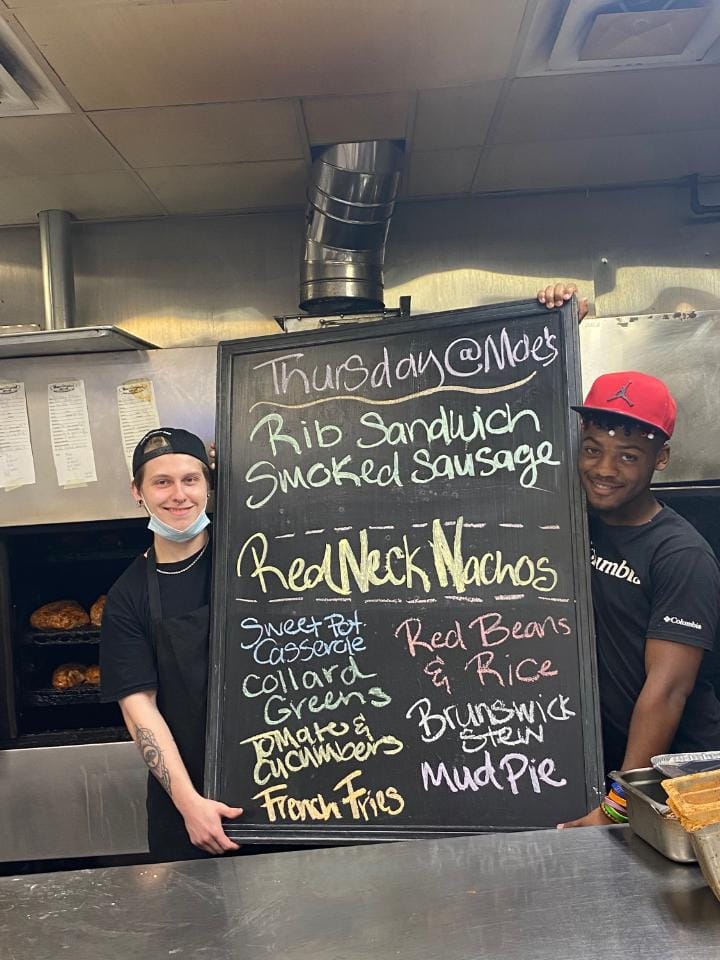 Thursday @ Moe's
Rib Sandwich
Smoked Sausage
RedNeck Nachos
Sweet Pot.
Casserole
Collard
Greens
Tomato &
Cucumbers
French Fries
Red Beans
& Rice
Brunswick
Stew
Mud Pie
umbia
Columbia